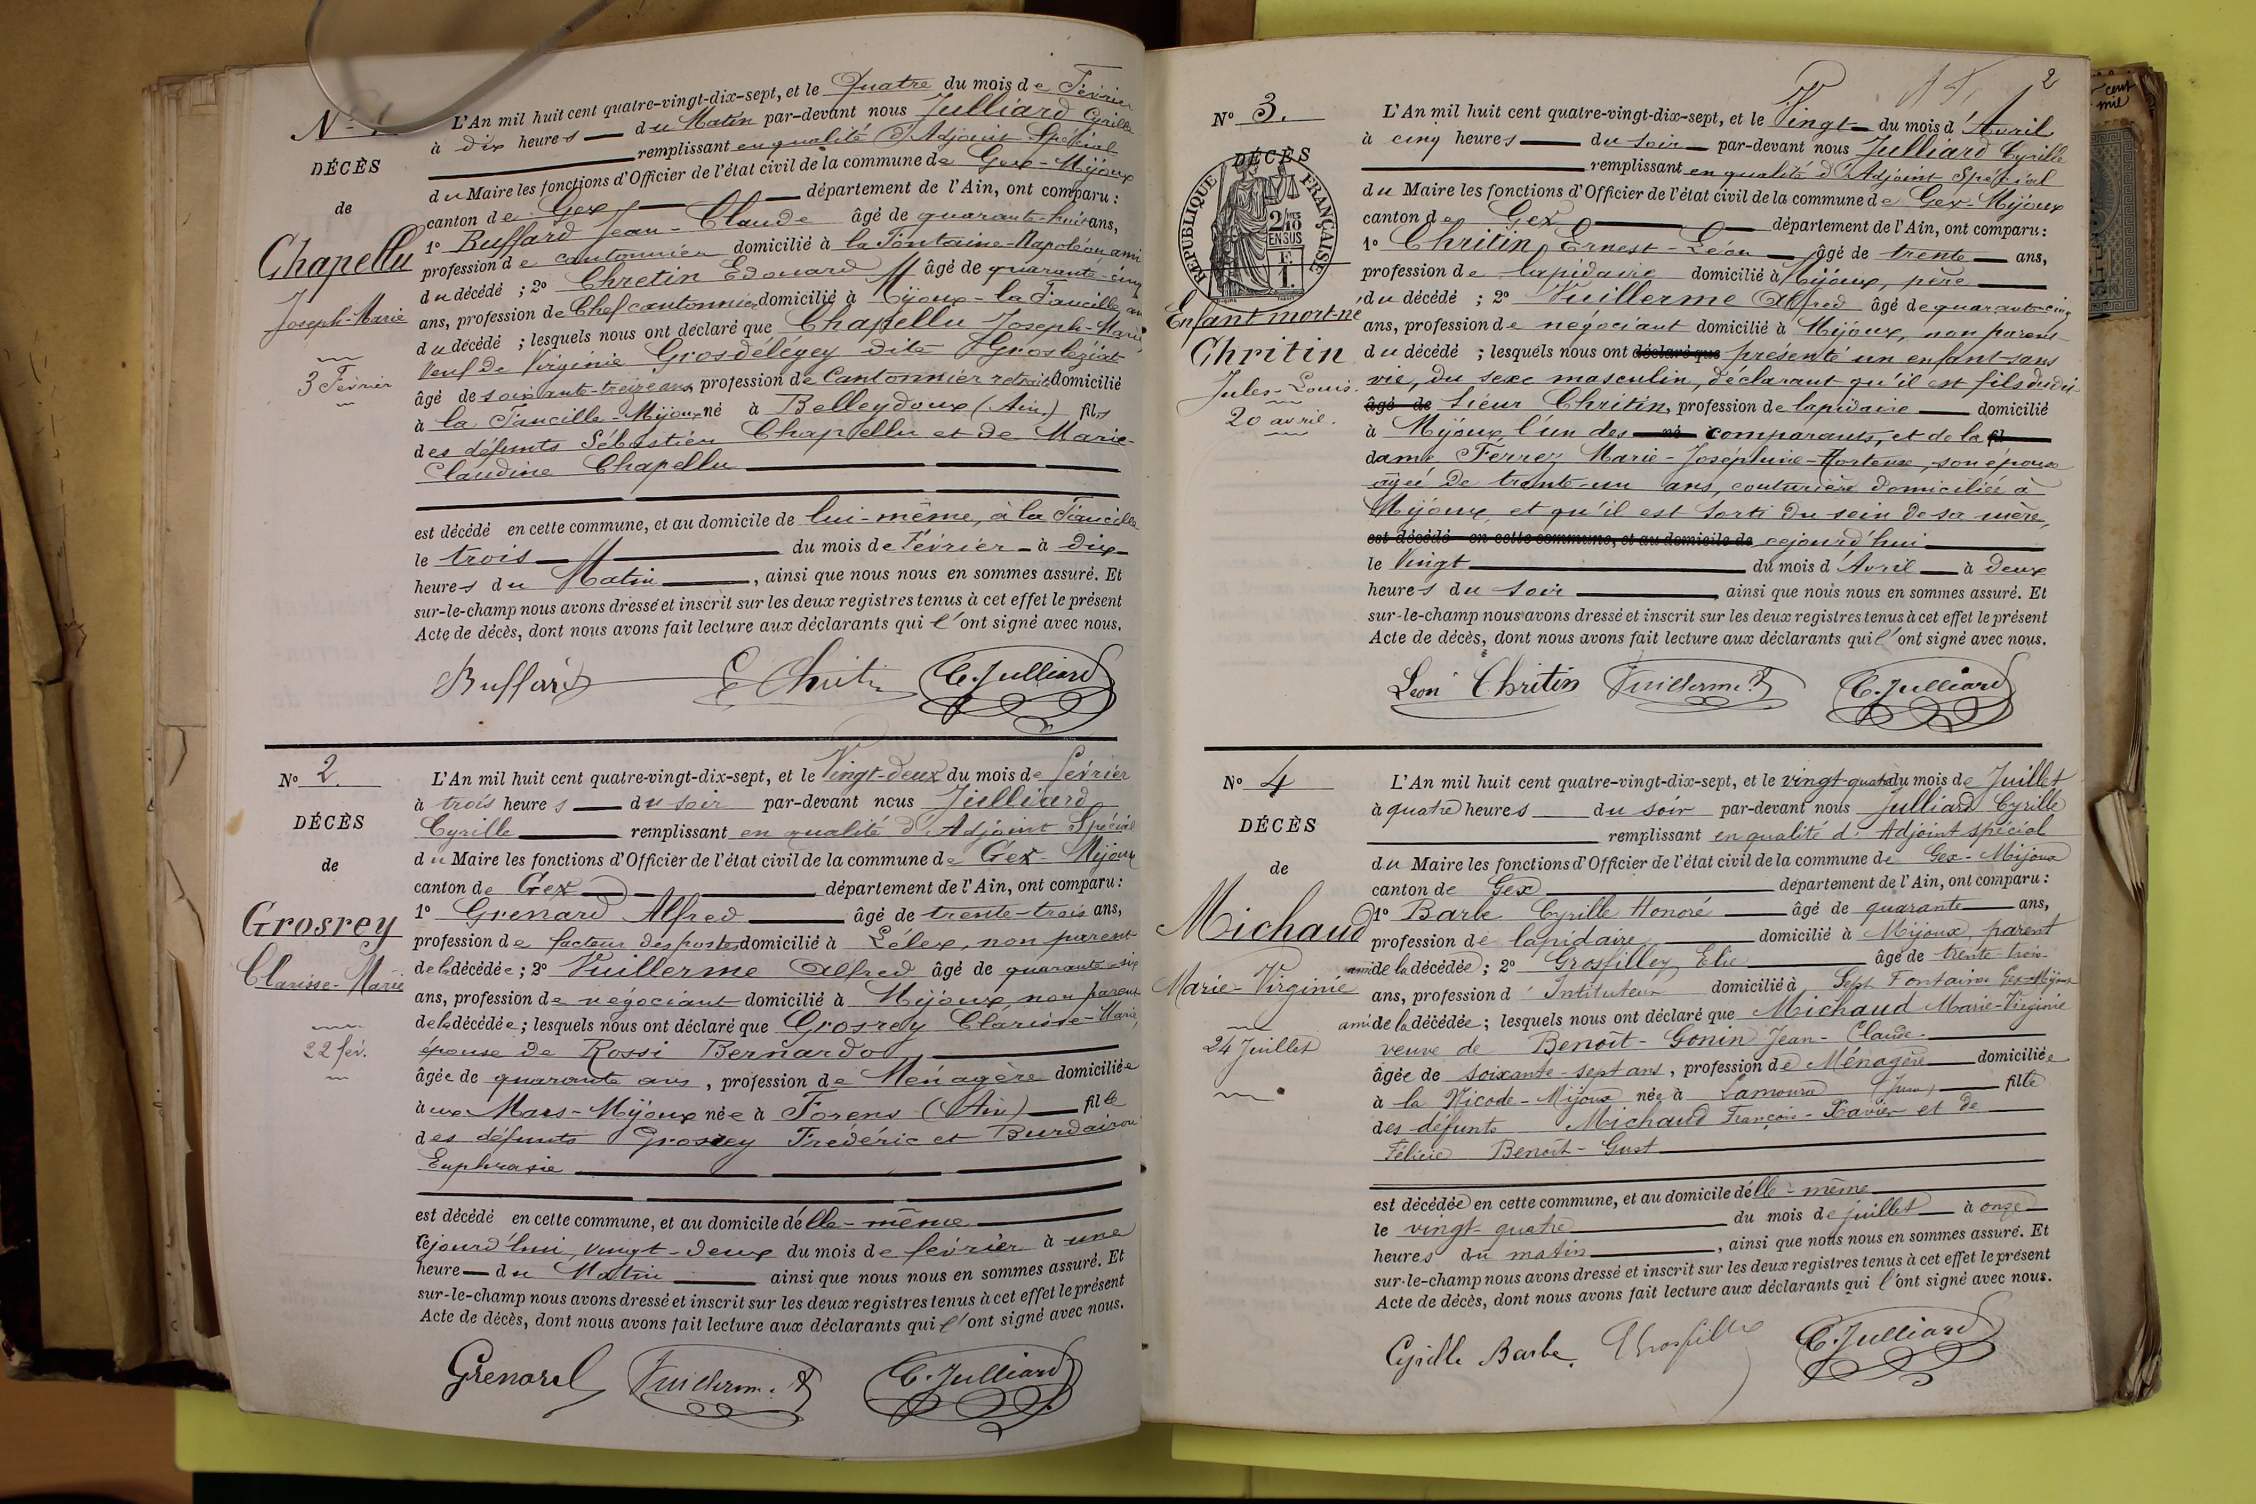 N° 1
DÉCÈS
de
Chapellu
Joseph-Marie
3 Février
L'An mil huit cent quatre-vingt-dix-sept, et le Quatre du mois de Février
à dix heures du Matin par-devant nous Julliard Cyrille
remplissant en qualité d'Adjoint Spécial
du Maire les fonctions d'Officier de l'état civil de la commune de Gex-Mijoux
canton de Gex département de l'Ain, ont comparu :
1° Buffard Jean-Claude âgé de quarante-huit ans,
profession de cantonnier domicilié à la Fontaine-Napoléon ami
du décédé ; 2° Chretin Edouard âgé de quarante-cinq
ans, profession de Chef cantonnier domicilié à Mijoux-la Faucille, ami
du décédé ; lesquels nous ont déclaré que Chapellu Joseph-Marie
Veuf de Virginie Grosdélégey dite Grosleziat
âgé de soixante-treize ans, profession de Cantonnier retraité domicilié
à la Faucille-Mijoux né à Belleydoux (Ain) fils
des défunts Sébastien Chapellu et de Marie-
Claudine Chapellu
est décédé en cette commune, et au domicile de lui-même, à la Faucille
le trois du mois de Février à dix
heures du Matin, ainsi que nous nous en sommes assuré. Et
sur-le-champ nous avons dressé et inscrit sur les deux registres tenus à cet effet le présent
Acte de décès, dont nous avons fait lecture aux déclarants qui l'ont signé avec nous.
Buffard E Chritin C. Julliard
N° 2.
DÉCÈS
de
Grosrey
Clarisse-Marie
22 fév.
L'An mil huit cent quatre-vingt-dix-sept, et le Vingt-deux du mois de février
à trois heures du soir par-devant nous Julliard
Cyrille remplissant en qualité d'Adjoint Spécial
du Maire les fonctions d'Officier de l'état civil de la commune de Gex-Mijoux
canton de Gex département de l'Ain, ont comparu :
1° Grenard Alfred âgé de trente-trois ans,
profession de facteur des postes domicilié à Lélex, non parent
de la décédée ; 2° Vuillerme Alfred âgé de quarante-six
ans, profession de négociant domicilié à Mijoux, non parent
de la décédée ; lesquels nous ont déclaré que Grosrey Clarisse-Marie,
épouse de Rossi Bernardo
âgée de quarante ans, profession de Ménagère domiciliée
aux Mars-Mijoux née à Forens (Ain) fille
des défunts Grosrey Frédéric et Burdairon
Euphrasie
est décédé en cette commune, et au domicile d'elle-même
cejourd'hui, vingt-deux du mois de février à une
heure du Matin ainsi que nous nous en sommes assuré. Et
sur-le-champ nous avons dressé et inscrit sur les deux registres tenus à cet effet le présent
Acte de décès, dont nous avons fait lecture aux déclarants qui l'ont signé avec nous.
Grenard Vuillerme A C. Julliard
2
N° 3.
DÉCÈS
RÉPUBLIQUE FRANÇAISE
2/10 EN SUS
F. 1.
Enfant mort-né
Chritin
Jules-Louis.
20 avril.
L'An mil huit cent quatre-vingt-dix-sept, et le Vingt du mois d'Avril
à cinq heures du soir par-devant nous Julliard Cyrille
remplissant en qualité d'Adjoint Spécial
du Maire les fonctions d'Officier de l'état civil de la commune de Gex-Mijoux
canton de Gex département de l'Ain, ont comparu :
1° Chritin, Ernest-Léon âgé de trente ans,
profession de lapidaire domicilié à Mijoux, père
du décédé ; 2° Vuillerme Alfred âgé de quarante-cinq
ans, profession de négociant domicilié à Mijoux, non parent
du décédé ; lesquels nous ont déclaré que présenté un enfant sans
vie, du sexe masculin, déclarant qu'il est fils dudit
âgé de Sieur Chritin, profession de lapidaire domicilié
à Mijoux, l'un des né comparants, et de la fil
dame Ferrez Marie-Joséphine-Hortense, son épouse
âgée de trente-un ans, couturière domiciliée à
Mijoux, et qu'il est sorti du sein de sa mère,
est décédé en cette commune, et au domicile de cejourd'hui
le Vingt du mois d'Avril à deux
heures du soir, ainsi que nous nous en sommes assuré. Et
sur-le-champ nous avons dressé et inscrit sur les deux registres tenus à cet effet le présent
Acte de décès, dont nous avons fait lecture aux déclarants qui l'ont signé avec nous.
Léon Chritin Vuillerme A C. Julliard
N° 4
DÉCÈS
de
Michaud
Marie-Virginie
24 Juillet
L'An mil huit cent quatre-vingt-dix-sept, et le vingt-quatre du mois de Juillet
à quatre heures du soir par-devant nous Julliard Cyrille
remplissant en qualité d'Adjoint spécial
du Maire les fonctions d'Officier de l'état civil de la commune de Gex-Mijoux
canton de Gex département de l'Ain, ont comparu :
1° Barbe Cyrille Honoré âgé de quarante ans,
profession de lapidaire domicilié à Mijoux, parent
de la décédée ; 2° Grosfilley Elie âgé de trente-trois
ans, profession d'Intituteur domicilié à Sept Fontaines Gex-Mijoux
ami de la décédée ; lesquels nous ont déclaré que Michaud Marie-Virginie
veuve de Benoît-Gonin Jean-Claude
âgée de soixante-sept ans, profession de Ménagère domiciliée
à la Nicode-Mijoux née à Lamoura (Jura) fille
des défunts Michaud François-Xavier et de
Félicie Benoît-Gust
est décédée en cette commune, et au domicile d'elle-même
le vingt-quatre du mois de juillet à onze
heures du matin, ainsi que nous nous en sommes assuré. Et
sur-le-champ nous avons dressé et inscrit sur les deux registres tenus à cet effet le présent
Acte de décès, dont nous avons fait lecture aux déclarants qui l'ont signé avec nous.
Cyrille Barbe. Grosfilley C. Julliard
cent
mil